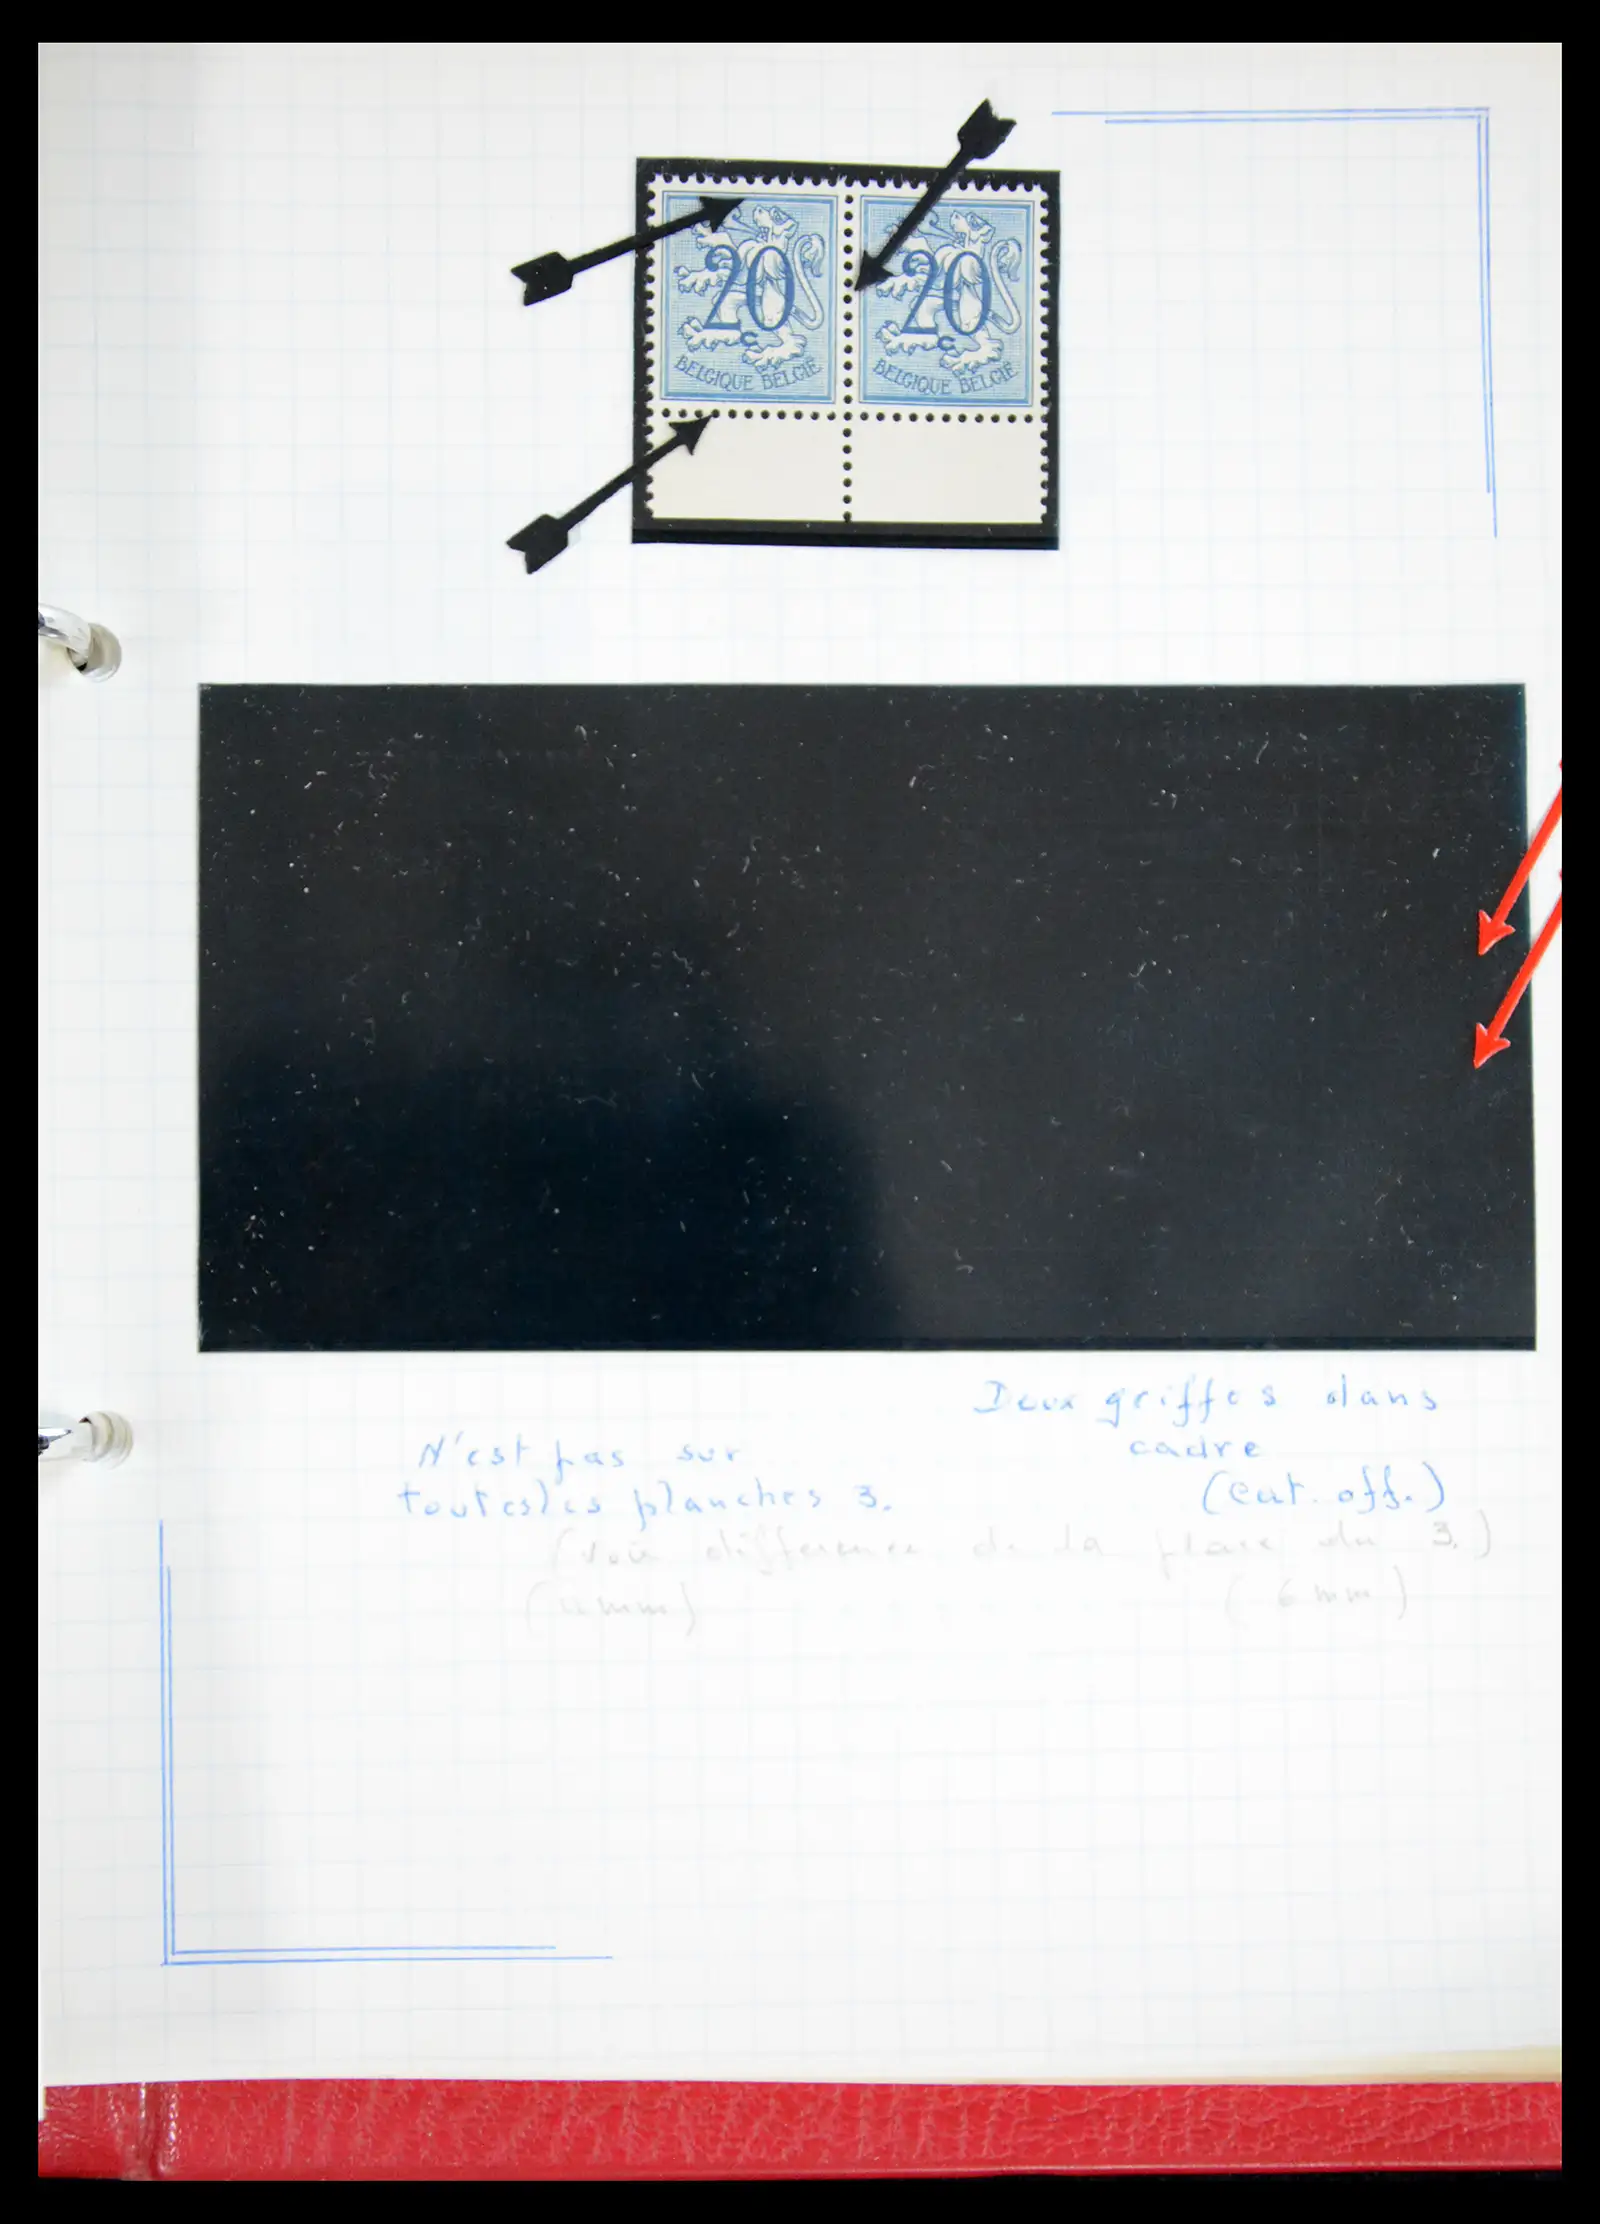 20 20
c c
BELGIQUE BELGIË BELGIQUE BELGIË
Deux griffes dans
cadre
(cat. off.)
N'est pas sur
toutes les planches 3.
(voir différence de la place du 3.)
(6 mm)